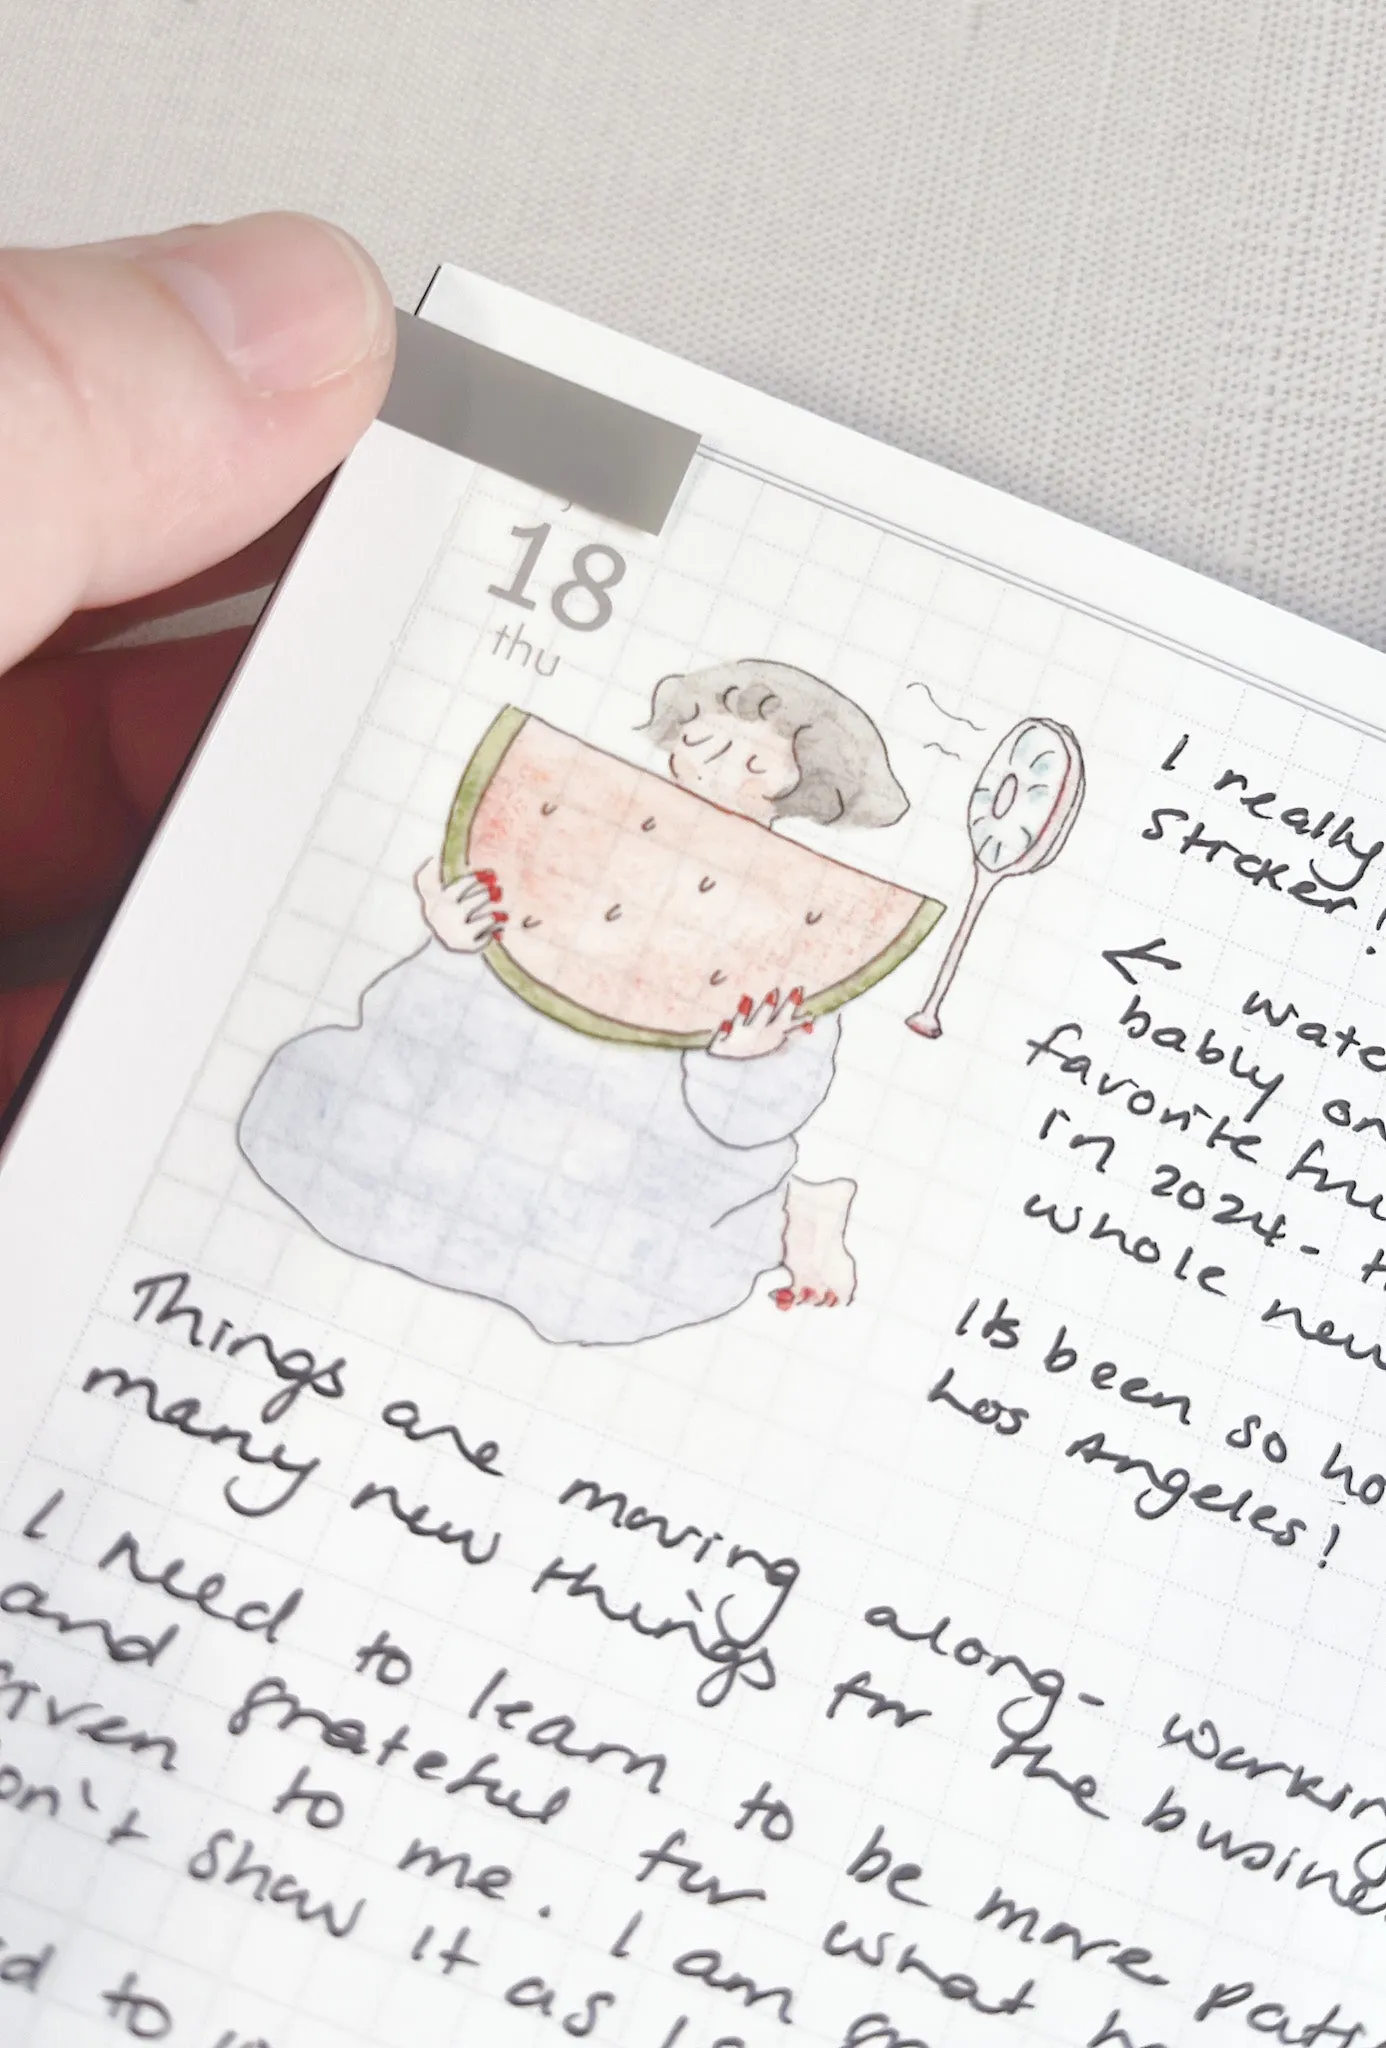 18
thu
I really
Sticker!
← wate
bably on
favorite fru
in 2024 - t
whole new
Its been so ho
Los Angeles!
Things are moving along - working
many new things for the busine
I need to learn to be more pati
and grateful for what h
given to me. I am gr
on't show it as
d to